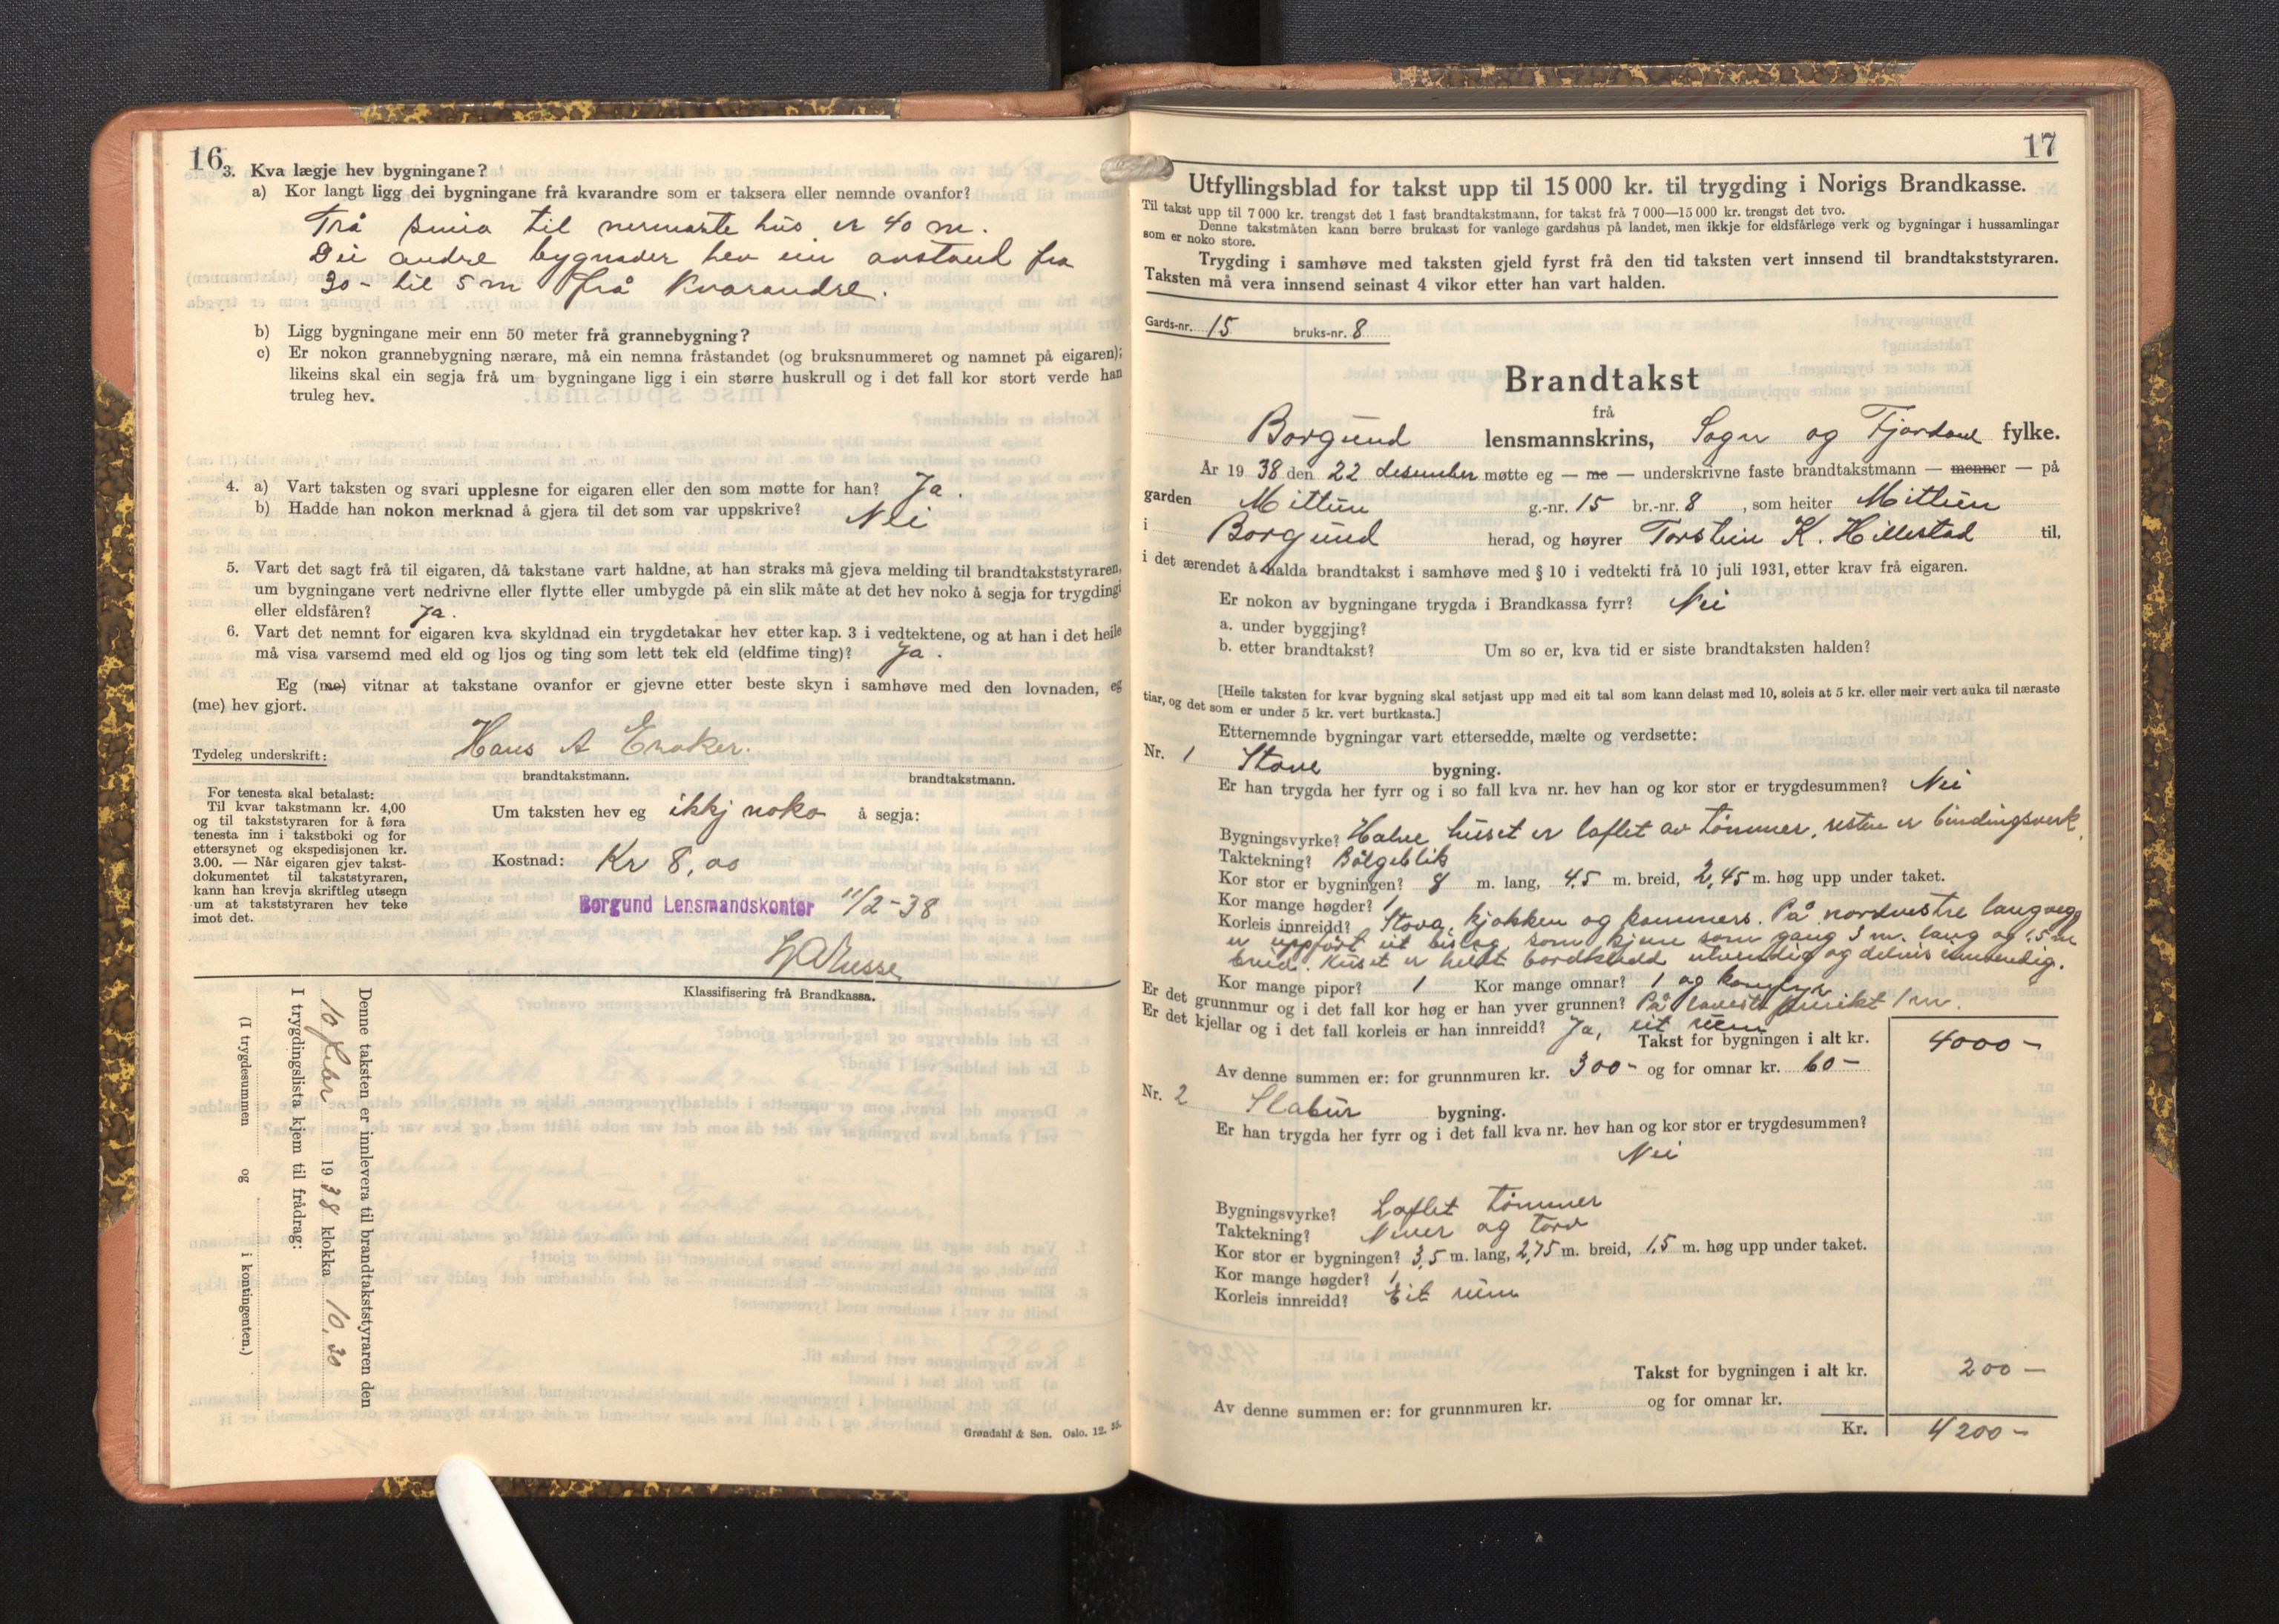 16
3. Kva lægje hev bygningane?
a) Kor langt ligg dei bygningane frå kvarandre som er taksera eller nemnde ovanfor?
Frå smia til nermaste hus er 40 m.
Dei andre bygnader hev ein avstand fra
30 - til 5 m frå kvarandre.
b) Ligg bygningane meir enn 50 meter frå grannebygning?
c) Er nokon grannebygning nærare, må ein nemna fråstandet (og bruksnummeret og namnet på eigaren);
likeins skal ein segja frå um bygningane ligg i ein større huskrull og i det fall kor stort verde han
truleg hev.
4. a) Vart taksten og svari upplesne for eigaren eller den som møtte for han? Ja.
b) Hadde han nokon merknad å gjera til det som var uppskrive? Nei
5. Vart det sagt frå til eigaren, då takstane vart haldne, at han straks må gjeva melding til brandtakststyraren,
um bygningane vert nedrivne eller flytte eller umbygde på ein slik måte at det hev noko å segja for trygdingi
eller eldsfåren? Ja.
6. Vart det nemnt for eigaren kva skyldnad ein trygdetakar hev etter kap. 3 i vedtektene, og at han i det heile
må visa varsemd med eld og ljos og ting som lett tek eld (eldfime ting)? Ja.
Eg (me) vitnar at takstane ovanfor er gjevne etter beste skyn i samhøve med den lovnaden, eg
(me) hev gjort.
Tydeleg underskrift: Hans A Eraker.
brandtakstmann. brandtakstmann.
For tenesta skal betalast:
Til kvar takstmann kr. 4,00
og til takststyraren for å føra
tenesta inn i takstboki og for
ettersynet og ekspedisjonen kr.
3.00. — Når eigaren gjev takst-
dokumentet til takststyraren,
kann han krevja skriftleg utsegn
um at takststyraren hev teke
imot det.
Um taksten hev eg ikkj noko å segja:
Kostnad: Kr 8,00
Borgund Lensmandskontor 11/2-38
Klassifisering frå Brandkassa.
Denne taksten er innlevera til brandtakststyraren den
10 febr 1938 klokka 10,30
I trygdingslista kjem til frådrag:
(I trygdesummen og i kontingenten.)
Grøndahl & Søn. Oslo. 12. 35.
17
Utfyllingsblad for takst upp til 15 000 kr. til trygding i Norigs Brandkasse.
Til takst upp til 7 000 kr. trengst det 1 fast brandtakstmann, for takst frå 7 000—15 000 kr. trengst det tvo.
Denne takstmåten kann berre brukast for vanlege gardshus på landet, men ikkje for eldsfårlege verk og bygningar i hussamlingar
som er noko store.
Trygding i samhøve med taksten gjeld fyrst frå den tid taksten vert innsend til brandtakststyraren.
Taksten må vera innsend seinast 4 vikor etter han vart halden.
Gards-nr. 15 bruks-nr. 8
Brandtakst
frå
Borgund lensmannskrins, Sogn og Fjordane fylke.
År 1938 den 22 desember møtte eg — me — underskrivne faste brandtakstmann — menner — på
garden Mittun g.-nr. 15 br.-nr. 8, som heiter Mittun
i Borgund herad, og høyrer Torstein K. Hillestad til,
i det ærendet å halda brandtakst i samhøve med § 10 i vedtekti frå 10 juli 1931, etter krav frå eigaren.
Er nokon av bygningane trygda i Brandkassa fyrr? Nei
a. under byggjing?
b. etter brandtakst? Um so er, kva tid er siste brandtaksten halden?
[Heile taksten for kvar bygning skal setjast upp med eit tal som kann delast med 10, soleis at 5 kr. eller meir vert auka til næraste
tiar, og det som er under 5 kr. vert burtkasta.]
Etternemnde bygningar vart ettersedde, mælte og verdsette:
Nr. 1 Stove bygning.
Er han trygda her fyrr og i so fall kva nr. hev han og kor stor er trygdesummen? Nei
Bygningsvyrke? Halve huset er laftet av tømmer, resten er bindingsverk.
Taktekning? Bölgeblik
Kor stor er bygningen? 8 m. lang, 4,5 m. breid, 2,45 m. høg upp under taket.
Kor mange høgder? 1
Korleis innreidd? Stova, kjøkken og kammers. På nordvestre langvegg
er uppført eit bislag, som tjene som gang 3 m. lang og 1,5 m
breid. Huset er heilt bordkledd utvendig og delvis innvendig.
Kor mange pipor? 1 Kor mange omnar? 1 og komfyr
Er det grunnmur og i det fall kor høg er han yver grunnen? På laveste punkt 1 m.
Er det kjellar og i det fall korleis er han innreidd? Ja, eit rum
Takst for bygningen i alt kr. 4000 -
Av denne summen er: for grunnmuren kr. 300 - og for omnar kr. 60 -
Nr. 2 Stabur bygning.
Er han trygda her fyrr og i det fall kva nr. hev han og kor stor er trygdesummen?
Nei
Bygningsvyrke? Laftet tømmer
Taktekning? Never og torv
Kor stor er bygningen? 3,5 m. lang, 2,75 m. breid, 1,5 m. høg upp under taket.
Kor mange høgder? 1
Korleis innreidd? Eit rum
Takst for bygningen i alt kr. 200 -
Av denne summen er: for grunnmuren kr. og for omnar kr.
Kr. 4200 -